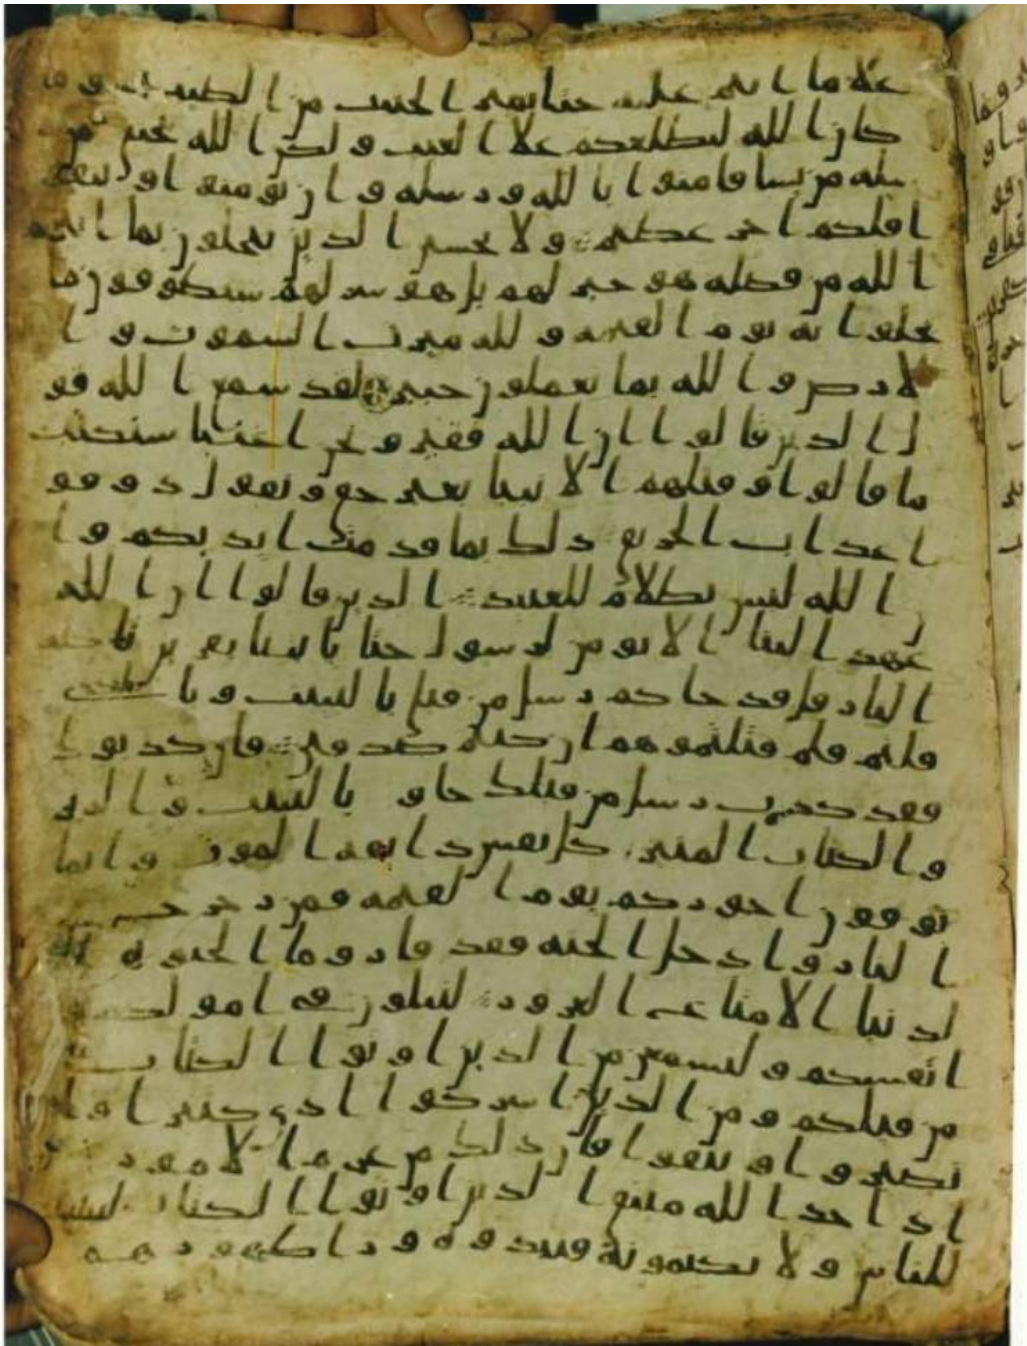 علا ما انتم عليه حتا يميز الخبيث من الطيب وما
كان الله ليطلعكم علا الغيب ولكن الله يجتبي من
رسله من يشا فامنوا بالله ورسله وان تومنوا وتتقو
ا فلكم اجر عظيم ولا يحسبن الذين يبخلون بما اتيهم
الله من فضله هو خير لهم بل هو شر لهم سيطوقون ما
بخلوا به يوم القيمة ولله ميرث السموت وا
لارض والله بما تعملون خبير لقد سمع الله قو
ل الذين قالوا ان الله فقير ونحن اغنيا سنكتب
ما قالوا وقتلهم الانبيا بغير حق ونقول ذوقو
ا عذاب الحريق ذلك بما قدمت ايديكم وا
ن الله ليس بظلام للعبيد الذين قالوا ان الله
عهد الينا الا نومن لرسول حتا ياتينا بقربن تاكله
النار قل قد جاكم رسل من قبلي بالبينت وبالذي
قلتم فلم قتلتموهم ان كنتم صدقين فان كذبوك
فقد كذب رسل من قبلك جاو بالبينت والزبر
والكتاب المنير كل نفس ذايقة الموت وانما
توفون اجوركم يوم القيمة فمن زحزح عن
النار وادخل الجنة فقد فاز وما الحيوة ا
لدنيا الا متاع الغرور لتبلون في اموالكم و
انفسكم ولتسمعن من الذين اوتوا الكتاب
من قبلكم ومن الذين اشركوا اذى كثيرا وان
تصبروا وتتقوا فان ذلك من عزم الامور و
اذ اخذ الله ميثق الذين اوتوا الكتاب لتبيننه
للناس ولا تكتمونه فنبذوه ورا ظهورهم